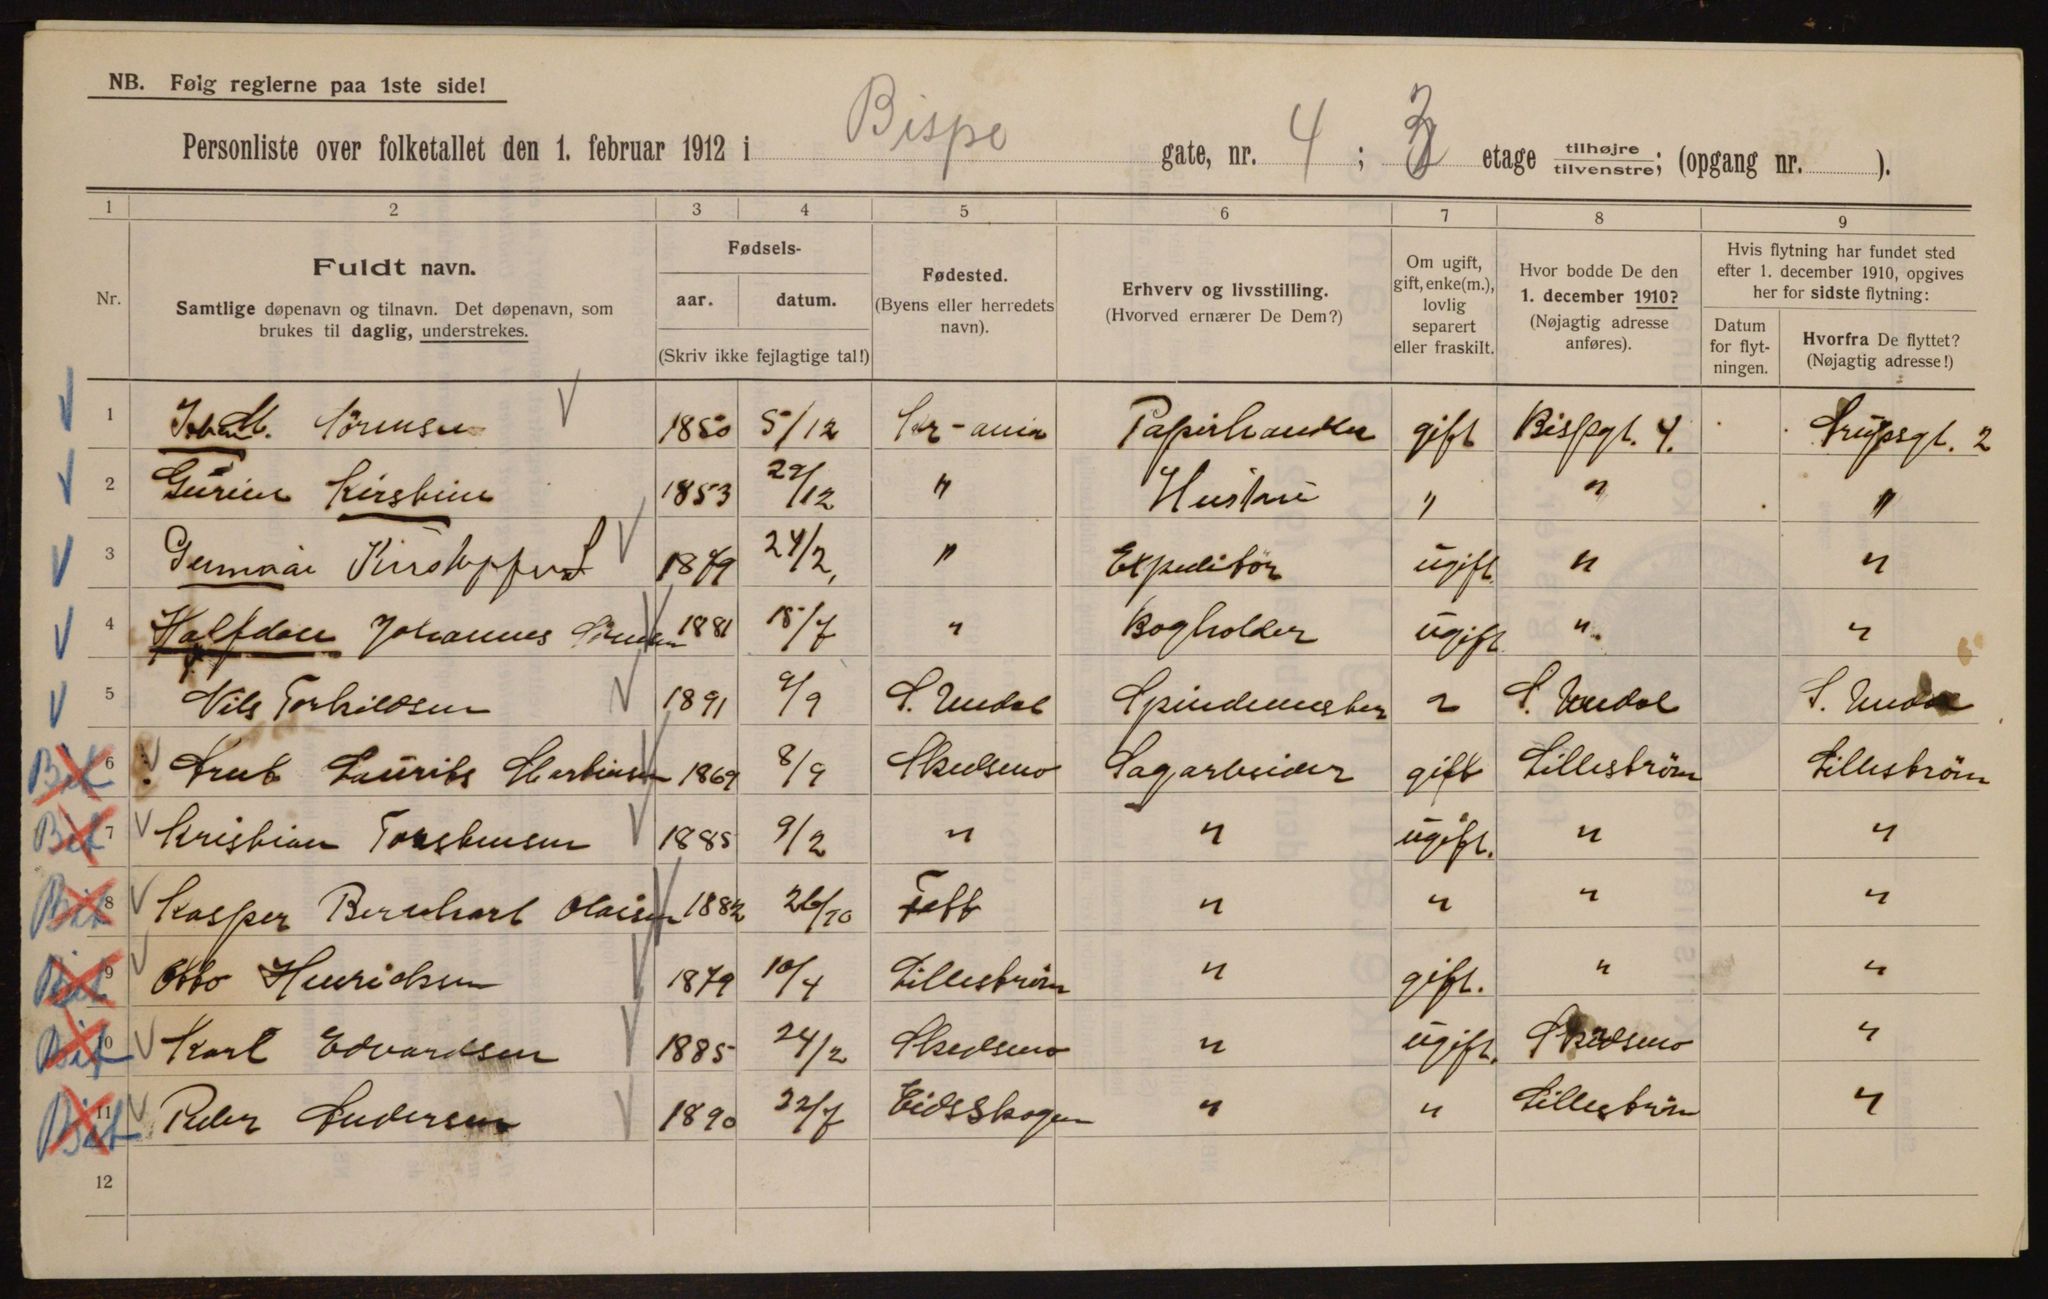 NB. Følg reglerne paa 1ste side!
Personliste over folketallet den 1. februar 1912 i Bispe gate, nr. 4 ; 3 etage tilhøjre tilvenstre; (opgang nr. ).
1 2 3 4 5 6 7 8 9
Nr. Fuldt navn. Samtlige døpenavn og tilnavn. Det døpenavn, som brukes til daglig, understrekes.
Fødsels- aar. datum. (Skriv ikke fejlagtige tal!)
Fødested. (Byens eller herredets navn).
Erhverv og livsstilling. (Hvorved ernærer De Dem?)
Om ugift, gift, enke(m.), lovlig separert eller fraskilt.
Hvor bodde De den 1. december 1910? (Nøjagtig adresse anføres).
Hvis flytning har fundet sted efter 1. december 1910, opgives her for sidste flytning:
Datum for flytningen. Hvorfra De flyttet? (Nøjagtig adresse!)
1 Johan M. Sörensen 1850 5/12 Kr-ania Papirhandler gift Bispgt. 4. 2
2 Kirstine 1853 29/12 " Hustru " " "
3 1879 24/2, " Expeditör ugift " "
4 Halfdan Johannes Sörensen 1881 15/7 " Bogholder ugift " "
5 Nils Torkildsen 1891 9/9 S. Undal " S. Undal S. Undal
Bit 6 Knut Laurits Martinsen 1869 8/9 Skedsmo Sagarbeider gift Lilleström Lilleström
Bit 7 Kristian Torstensen 1885 9/2 " " ugift. " "
Bit 8 Kasper Bernhart Olaisen 1882 26/10 Fett " " " "
Bit 9 Otto Henriksen 1879 10/4 Lilleström " gift. " "
Bit 10 Karl Edvardsen 1885 24/2 Skedsmo " ugift. Skedsmo "
Bit 11 Peder Andersen 1890 22/7 Eidsskogen " " Lilleström "
12